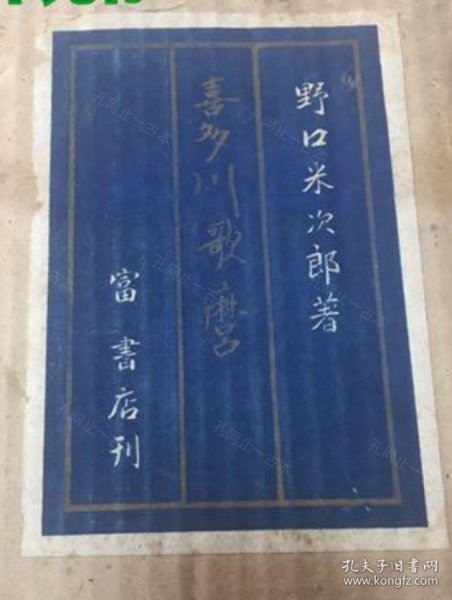 野口米次郎著
喜多川歌麿
富書店刊
孔夫子旧书网
www.kongfz.com